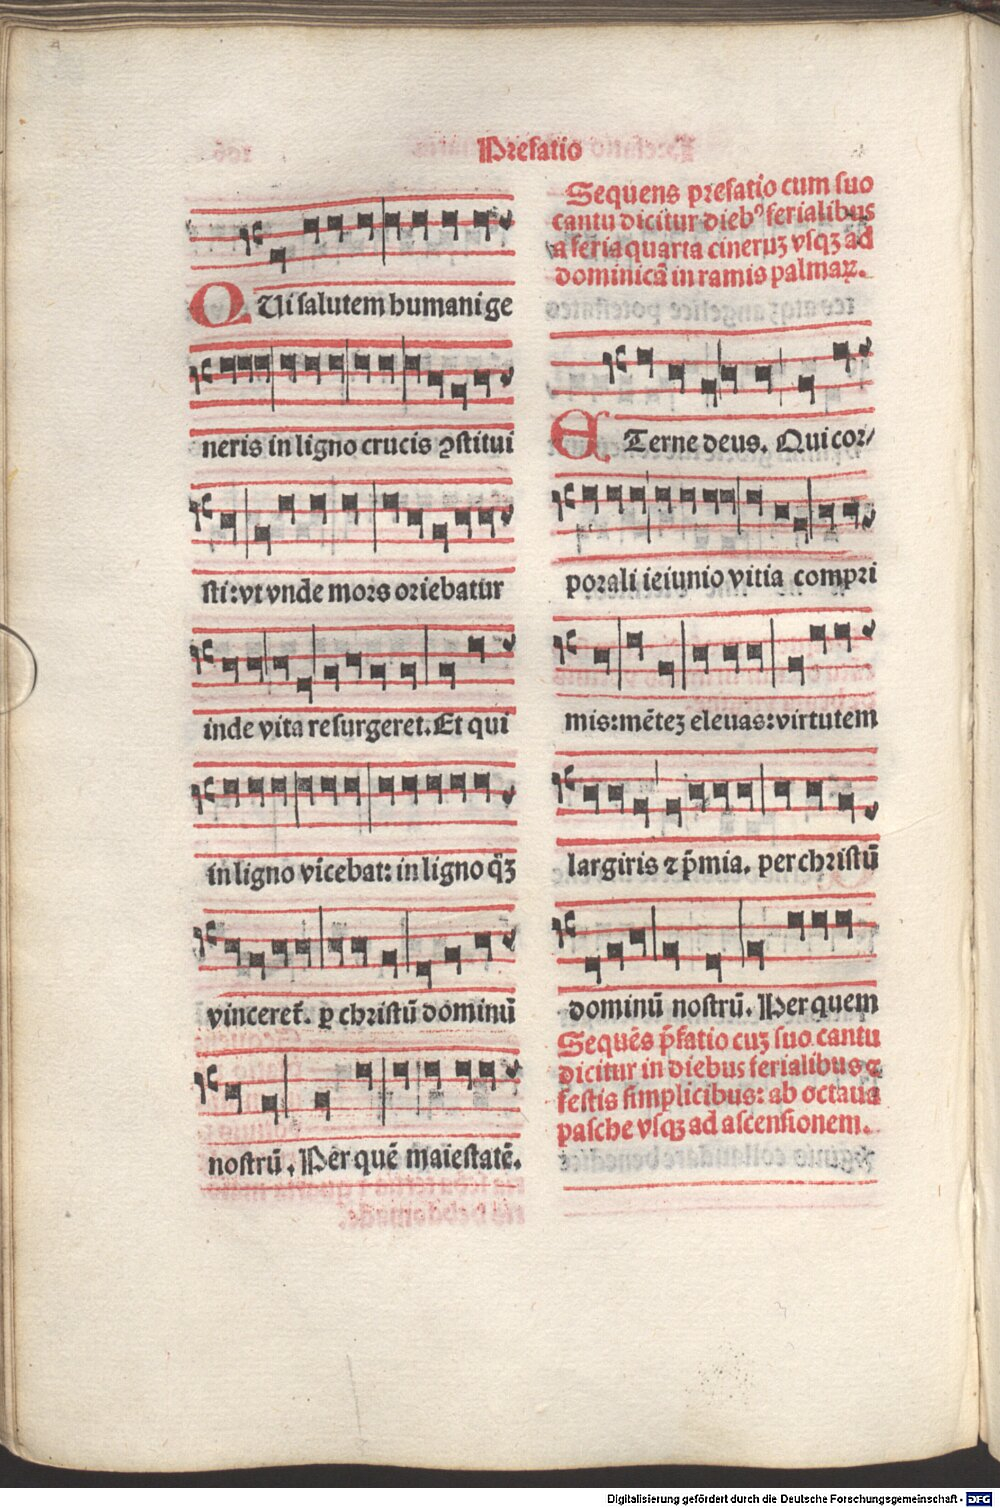 Prefatio
QUi salutem humani ge
neris in ligno crucis ꝯstitui
sti: vt vnde mors oriebatur
inde vita resurgeret. Et qui
in ligno vicebat: in ligno q̄ꝫ
vinceret᷑. ꝑ christū dominū
nostrū. Per quē maiestatē.
Sequens prefatio cum suo
cantu dicitur diebꝰ ferialibus
a feria quarta cineruꝫ vsqꝫ ad
dominicā in ramis palmaꝝ.
ETerne deus. Qui cor⸗
porali ieiunio vitia compri
mis: mētēꝫ eleuas: virtutem
largiris ⁊ p̄mia. per christū
dominū nostrū. Per quem
Sequēs p̄fatio cuꝫ suo cantu
dicitur in diebus ferialibus ⁊
festis simplicibus: ab octaua
pasche vsqꝫ ad ascensionem.
Digitalisierung gefördert durch die Deutsche Forschungsgemeinschaft - DFG